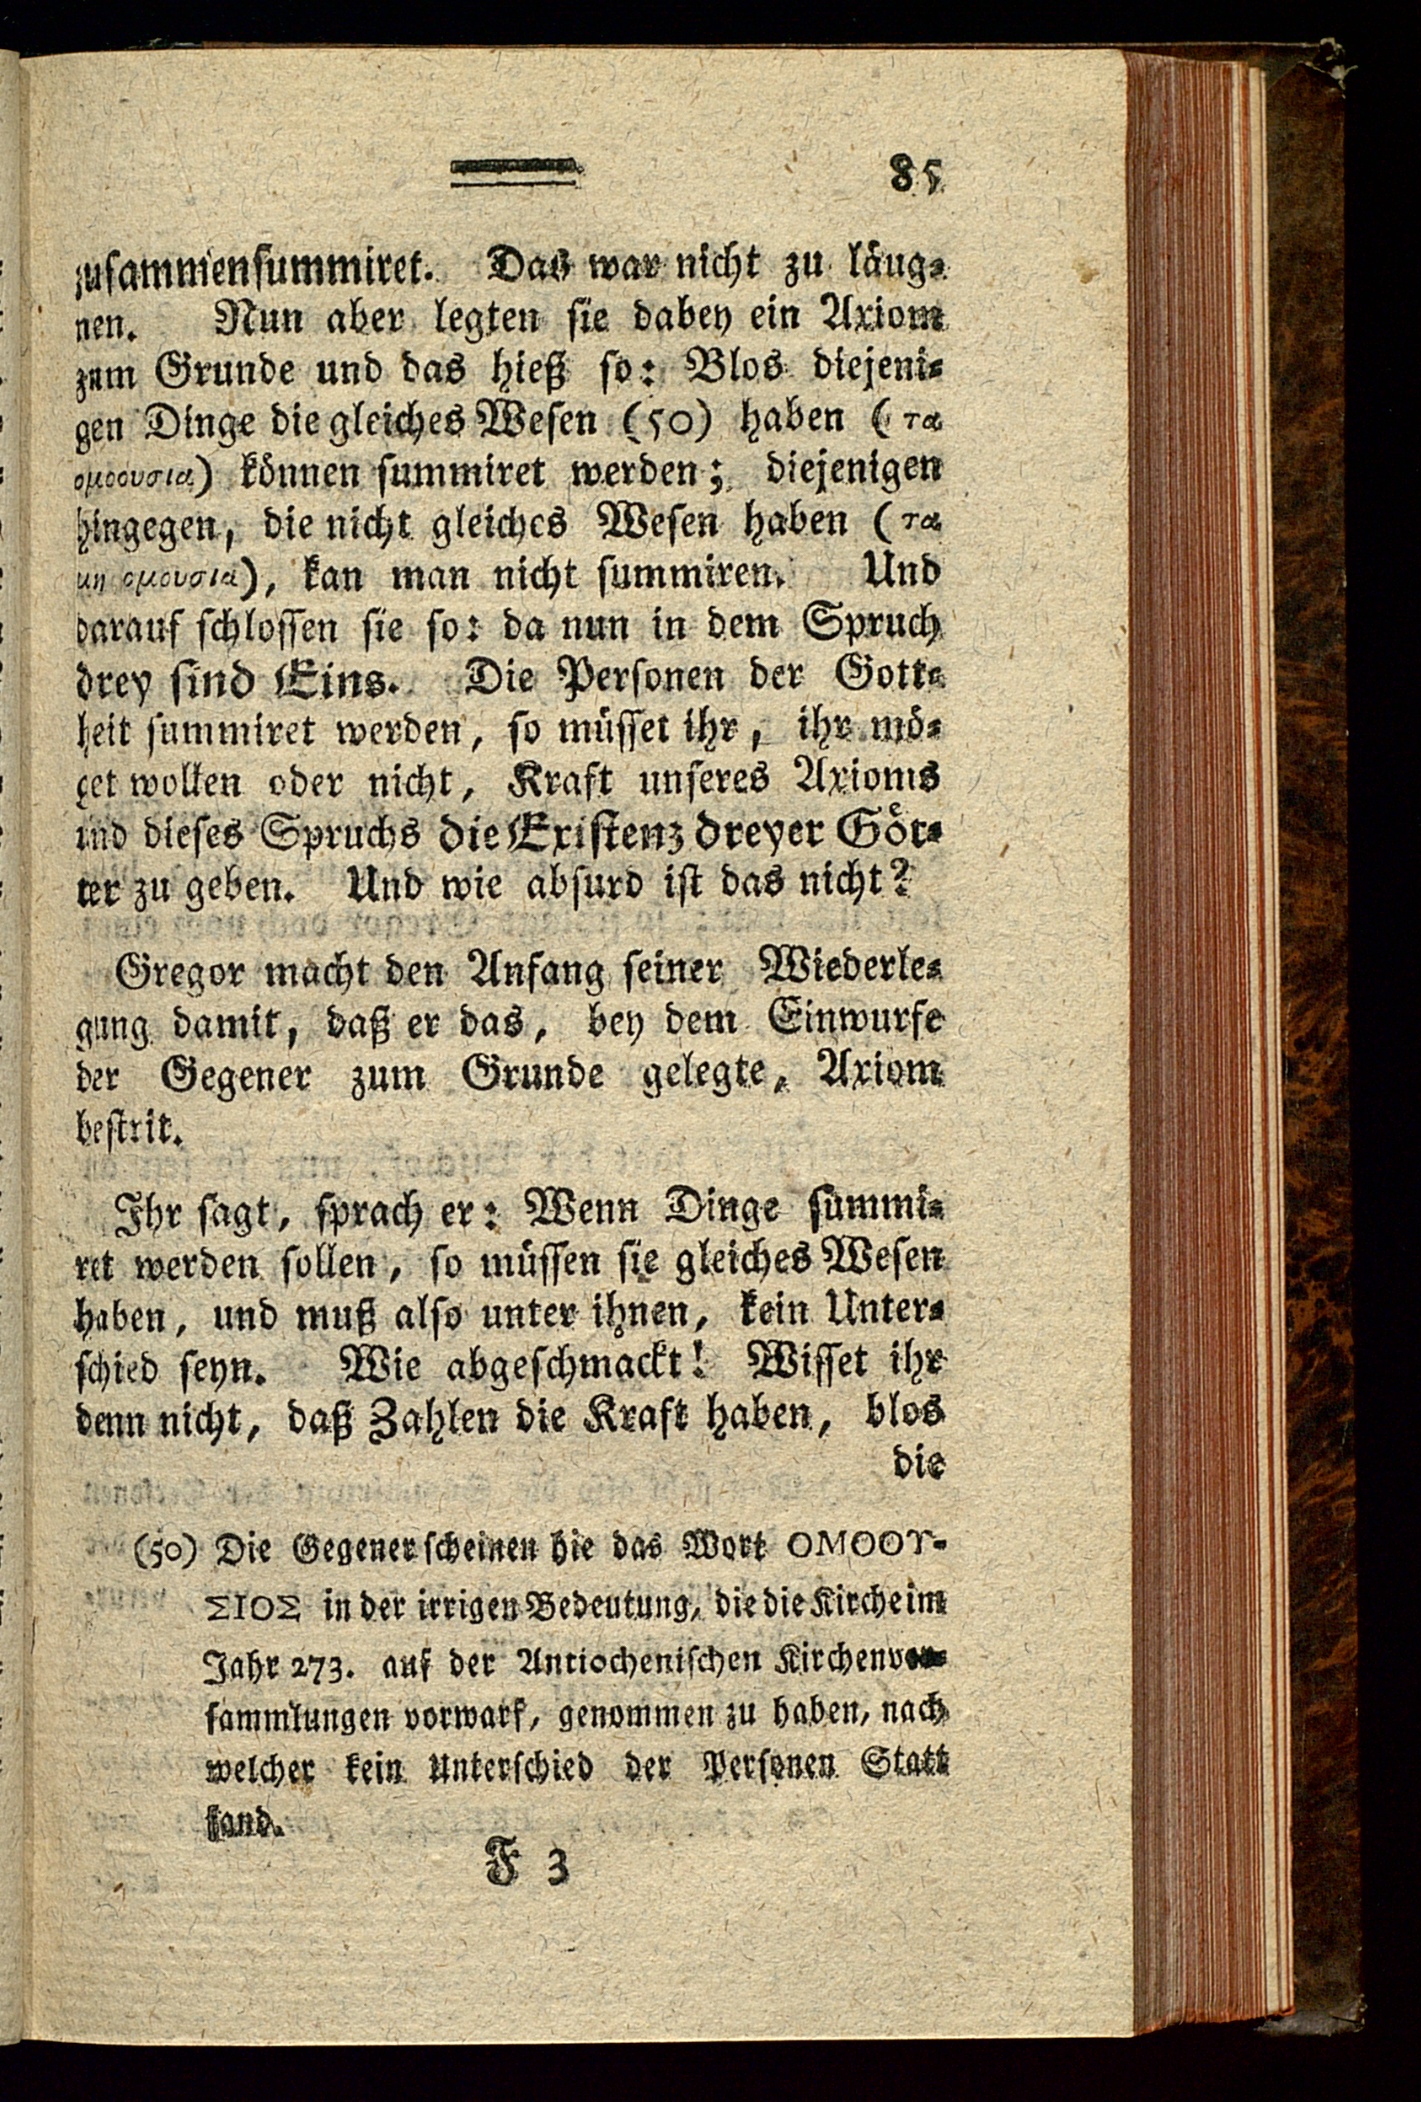 85
zusammensummiret. Das war nicht zu läug-
nen. Nun aber legten sie dabey ein Axiom
zum Grunde und das hieß so: Blos diejeni-
gen Dinge die gleiches Wesen (50) haben (τα
ομοουσια) können summiret werden; diejenigen
hingegen, die nicht gleiches Wesen haben (τα
μη ομουσια), kan man nicht summiren. Und
darauf schlossen sie so: da nun in dem Spruch
drey sind Eins. Die Personen der Gott-
heit summiret werden, so müsset ihr, ihr mö-
get wollen oder nicht, Kraft unseres Axioms
und dieses Spruchs die Existenz dreyer Göt-
ter zu geben. Und wie absurd ist das nicht?
Gregor macht den Anfang seiner Wiederle-
gung damit, daß er das, bey dem Einwurfe
der Gegener zum Grunde gelegte, Axiom
bestrit.
Ihr sagt, sprach er: Wenn Dinge summi-
ret werden sollen, so müssen sie gleiches Wesen
haben, und muß also unter ihnen, kein Unter-
schied seyn. Wie abgeschmackt! Wisset ihr
denn nicht, daß Zahlen die Kraft haben, blos
die
(50) Die Gegener scheinen hie das Wort ΟΜΟΟΥ-
ΣΙΟΣ in der irrigen Bedeutung, die die Kirche im
Jahr 273. auf der Antiochenischen Kirchenver-
sammlungen vorwarf, genommen zu haben, nach
welcher kein Unterschied der Personen Statt
fand.
F 3